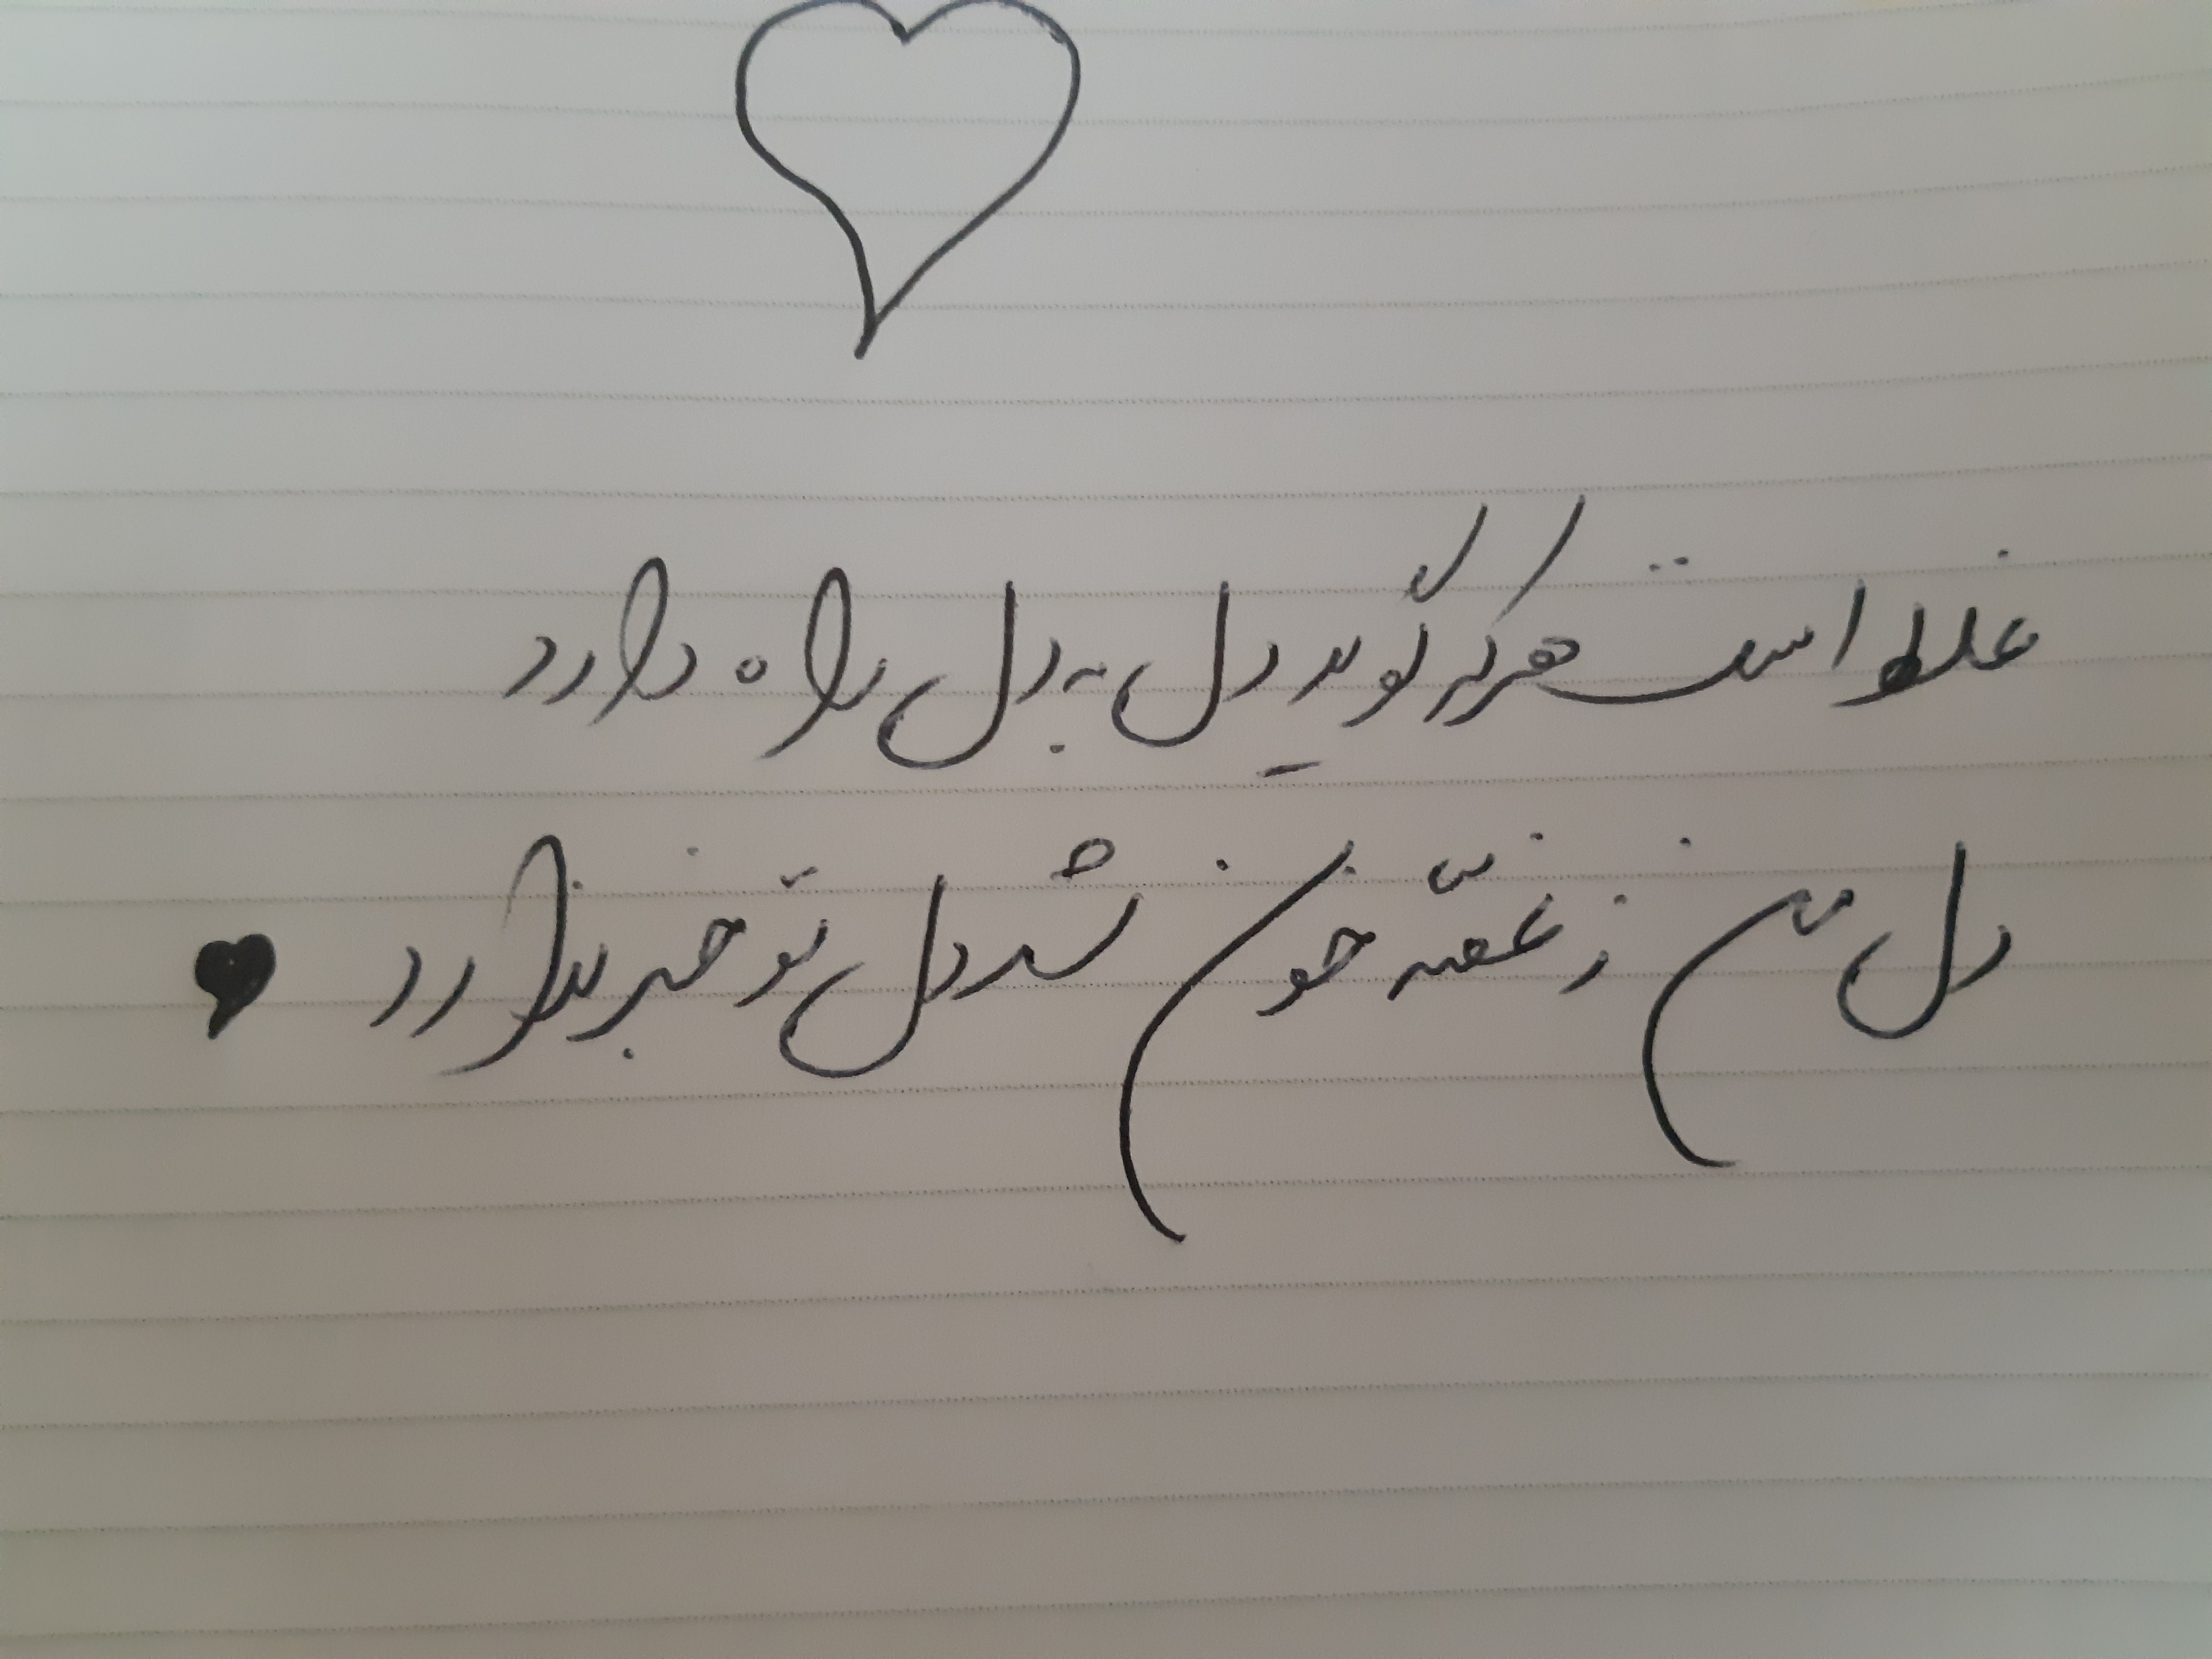 غلط است هر که گوید دل به دل راه دارد
دل من ز غصّه خون شد دل تو خبر ندارد